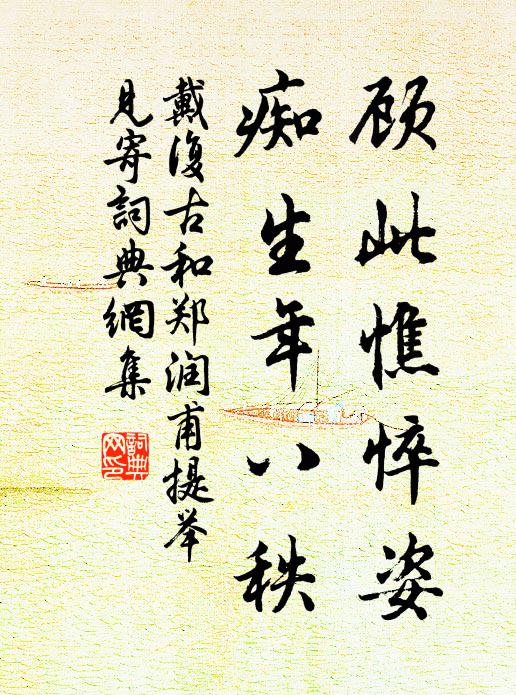 顾此憔悴姿
痴生年八秩
戴復古和郑润甫提举
見寄詞典網集
詞典
网印